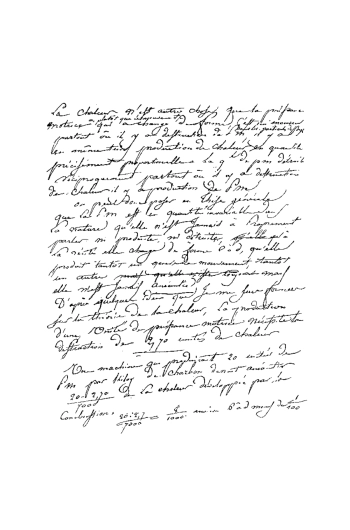 La chaleur n'est autre chose que la puissance
motrice ou plutôt que le mouvement
qui a changé de forme, c'est un mouvement
partout où il y a destruction de P.M. il y a
en même temps production de chaleur en quantité
précisément proportionnelle à la q^té de puis. détruite
réciproquement partout où il y a destruction
de chaleur il y a production de P.M
on peut donc poser en thèse générale
que la P.M est en quantité invariable dans
la nature qu'elle n'est jamais à proprement
parler ni produite ni détruite, qu'à
la vérité elle change de forme c à d, qu'elle
produit tantôt un genre de mouvement, tantôt
un autre mais
elle n'est jamais anéantie
D'après quelques idées que je me suis formées
sur la théorie de la chaleur, la production
d'une unité de puissance motrice nécessite la
destruction de 2,70 unités de chaleur
Une machine qui produirait 20 unités de
P.M par kilog de charbon devrait anéantir
20·2,70 / 7000 de la chaleur développée par la
combustion. 20·2,7 / 7000 = 8 / 1000 environ c à d moins de 1/100